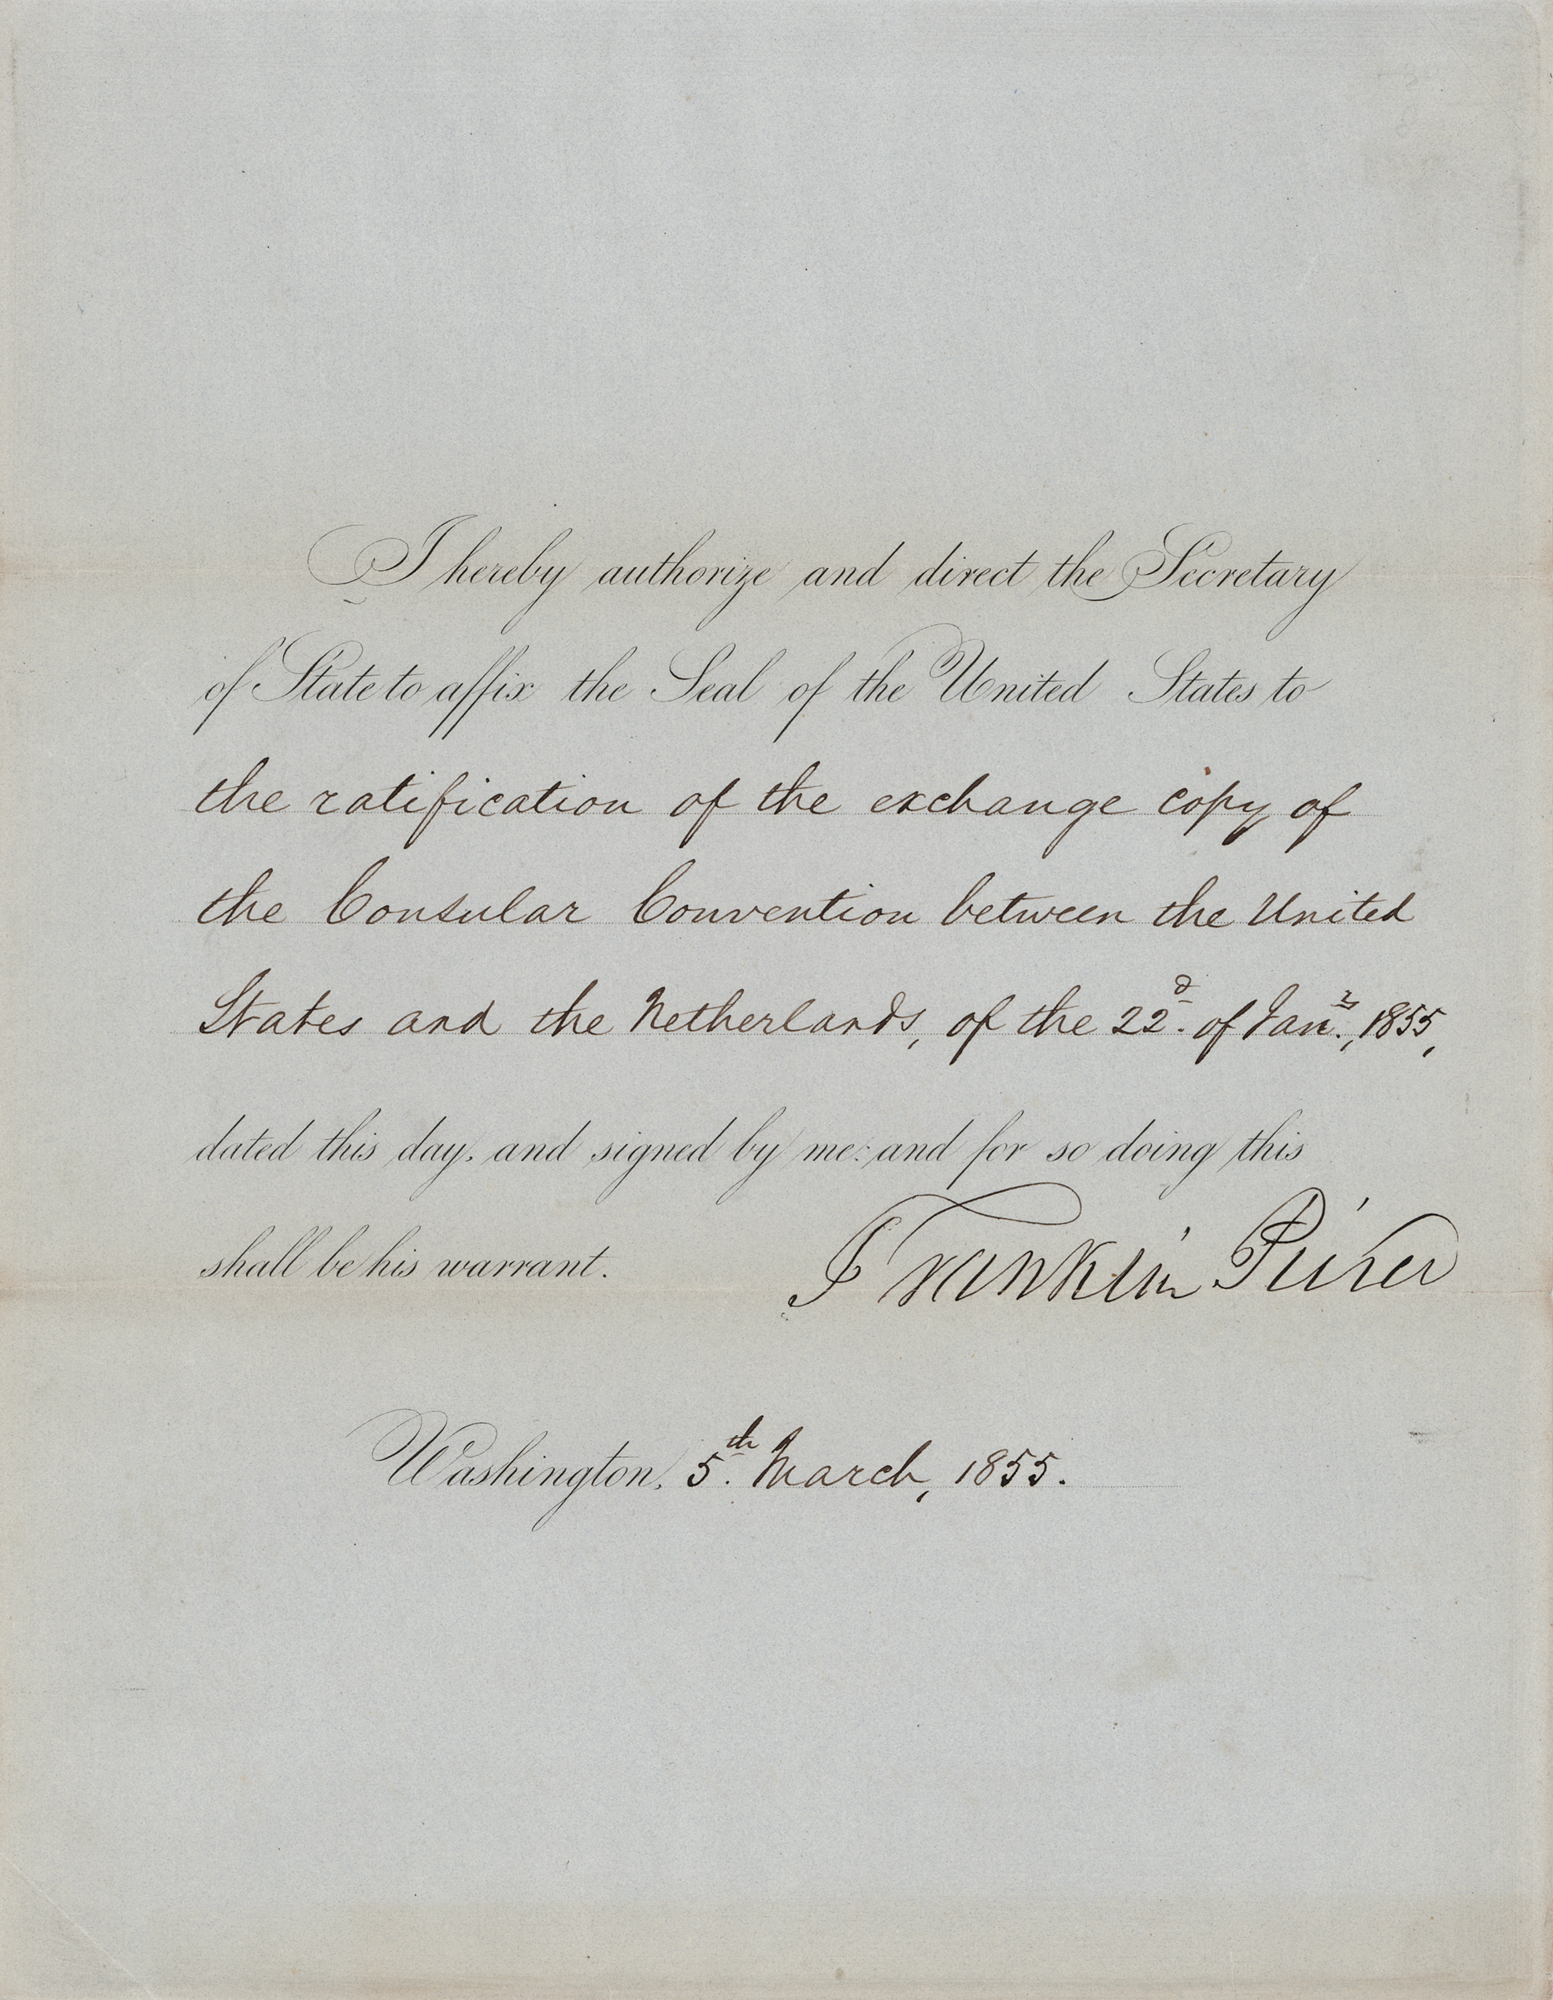 I hereby authorize and direct the Secretary
of State to affix the Seal of the United States to
the ratification of the exchange copy of
the Consular Convention between the United
States and the Netherlands, of the 22d. of Jany., 1855,
dated this day, and signed by me: and for so doing this
shall be his warrant.
Franklin Pierce
Washington, 5th. March, 1855.